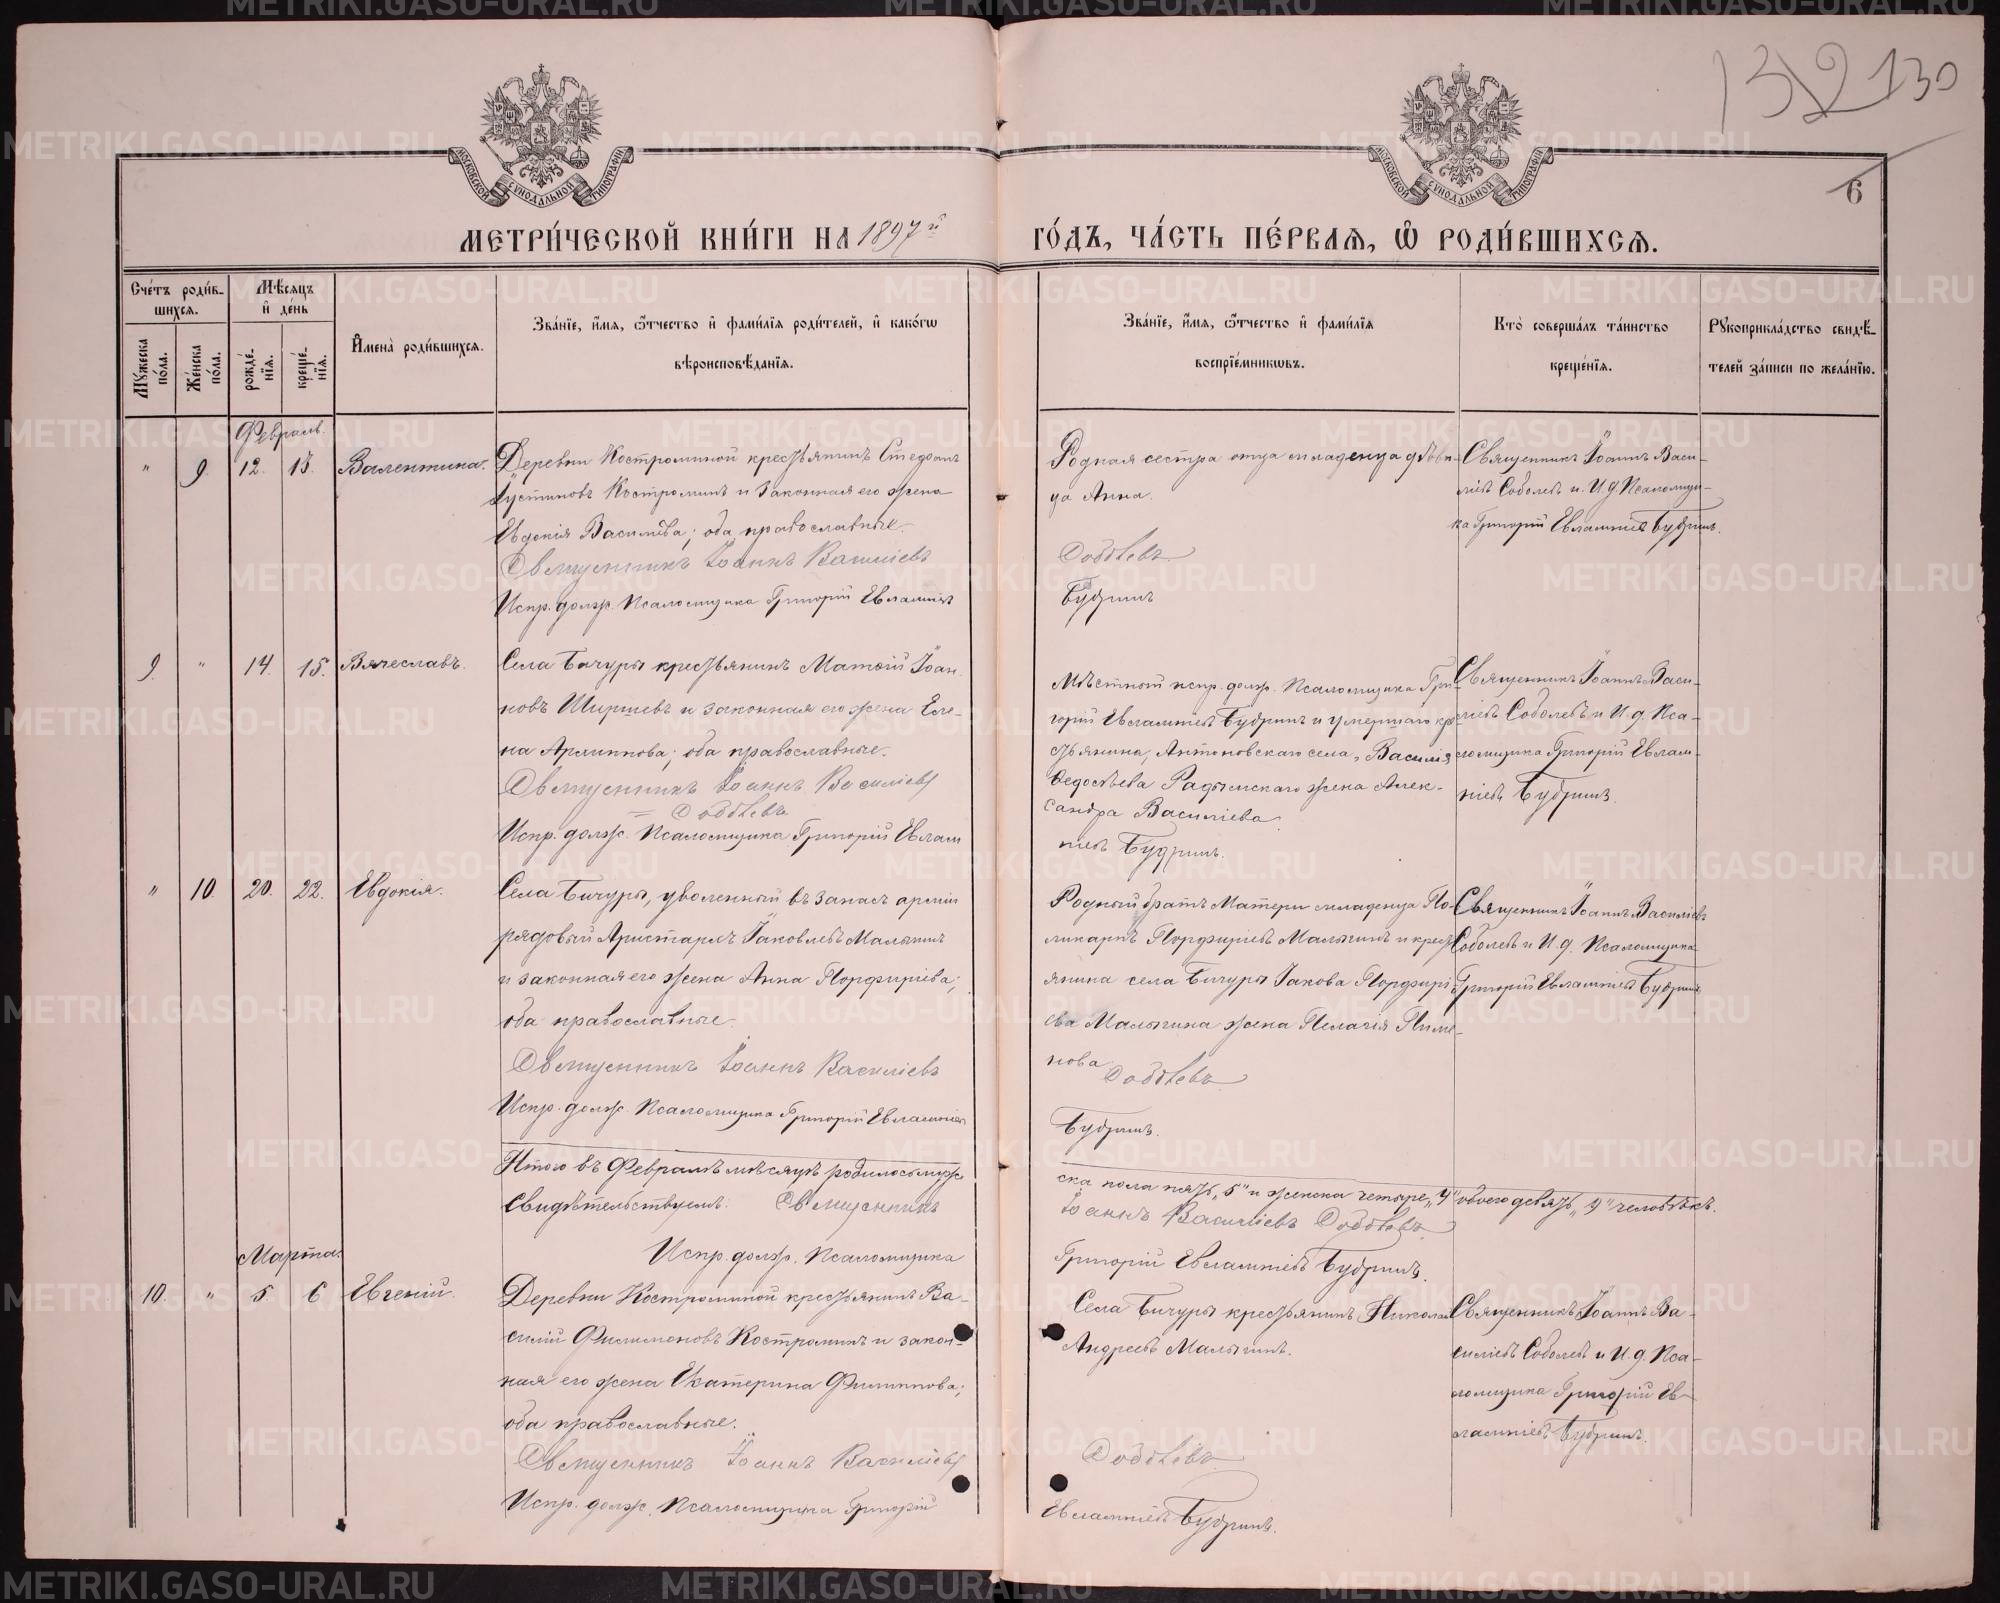 132 130
6
МЕТРИ́ЧЕСКОЙ КНИ́ГИ НА 1897й ГО́ДЪ, ЧА́СТЬ ПЕ́РВАЯ, Ѿ РОДИ́ВШИХСЯ.
Сче́тъ роди́вшихся.
Му́жеска по́ла.
Же́нска по́ла.
Мѣ́сяцъ и҆ де́нь
рожде́нїя.
креще́нїя.
И҆мена̀ роди́вшихся.
Зва́нїе, и҆́мя, ѻ҆́тчество и҆ фами́лїя роди́телей, и҆ како́гѡ
вѣроисповѣ́данїя.
Зва́нїе, и҆́мя, ѻ҆́тчество и҆ фами́лїя
воспрїе́мникѡвъ.
Кто̀ соверша́лъ та́инство
креще́нїя.
Рꙋкоприкла́дство свидѣ́-
телей за́писи по жела́нїю.
Февраль.
" 9. 12. 13. Валентина.
Деревни Костроминой крестьянинъ Стефанъ
Іустиновъ Костроминъ и законная его жена
Евдокія Васильева; оба православные.
Священникъ Іоаннъ Василіевъ
Испр. долж. Псаломщика Григорій Евлампіевъ
Родная сестра отца младенца дѣви-
ца Анна.
Соболевъ
Будринъ
Священникъ Іоаннъ Васи-
ліевъ Соболевъ и И.д. Псаломщи-
ка Григорій Евлампіевъ Будринъ.
9. " 14. 15. Вячеславъ.
Села Бичуры крестьянинъ Матѳій Іоан-
новъ Ширшевъ и законная его жена Еле-
на Архиппова; оба православные.
Священникъ Іоаннъ Василіевъ
Соболевъ
Испр. долж. Псаломщика Григорій Евлам
Мѣстный испр. долж. Псаломщика Гри-
горій Евлампіевъ Будринъ и умершаго кре-
стьянина, Антоновскаго села, Василія
Ѳедосѣева жена Алек-
сандра Василіева.
піевъ Будринъ.
Священникъ Іоаннъ Васи-
ліевъ Соболевъ и И.д. Пса-
ломщика Григорій Евлам-
піевъ Будринъ.
" 10. 20. 22. Евдокія.
Села Бичуры, уволенный въ запасъ арміи
рядовый Аристархъ Іаковлевъ Малыгинъ
и законная его жена Анна Порфиріева;
оба православные.
Священникъ Іоаннъ Василіевъ
Испр. долж. Псаломщика Григорій Евлампіевъ
Родный братъ Матери младенца По-
ликарпъ Порфиріевъ Малыгинъ и крест-
янина села Бичуры Іакова Порфирі-
ева Малыгина жена Пелагія Пиме-
нова.
Соболевъ
Будринъ.
Священникъ Іоаннъ Василіевъ
Соболевъ и И.д. Псаломщика
Григорій Евлампіевъ Будринъ
Итого въ Февралѣ мѣсяцѣ родилось муже
ска пола пять "5" и женска четыре "4" обоего девять "9" человѣкъ.
Свидѣтельствуемъ: Священникъ
Іоаннъ Василіевъ Соболевъ.
Испр. долж. Псаломщика
Григорій Евлампіевъ Будринъ.
Марта.
10. " 5 6 Евгеній.
Деревни Костроминой крестьянинъ Ва-
силій Филимоновъ Костроминъ и закон-
ная его жена Екатерина Филиппова;
оба православные.
Священникъ Іоаннъ Василіевъ
Испр. долж. Псаломщика Григорій
Села Бичуры крестьянинъ Николай
Андреевъ Малыгинъ.
Соболевъ
Евлампіевъ Будринъ.
Священникъ Іоаннъ Ва-
силіевъ Соболевъ и И.д. Пса-
ломщика Григорій Ев-
лампіевъ Будринъ.